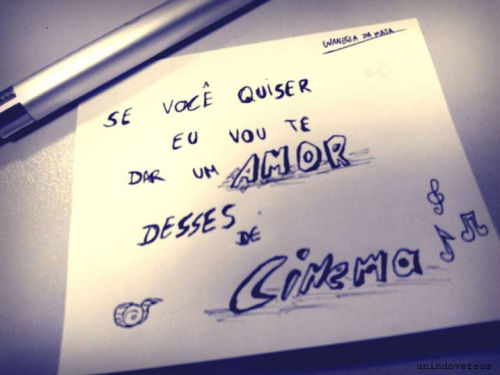 WANESSA DA MATA
SE VOCÊ QUISER
EU VOU TE
DAR UM AMOR
DESSES
DE
CINEMA
unindoversos